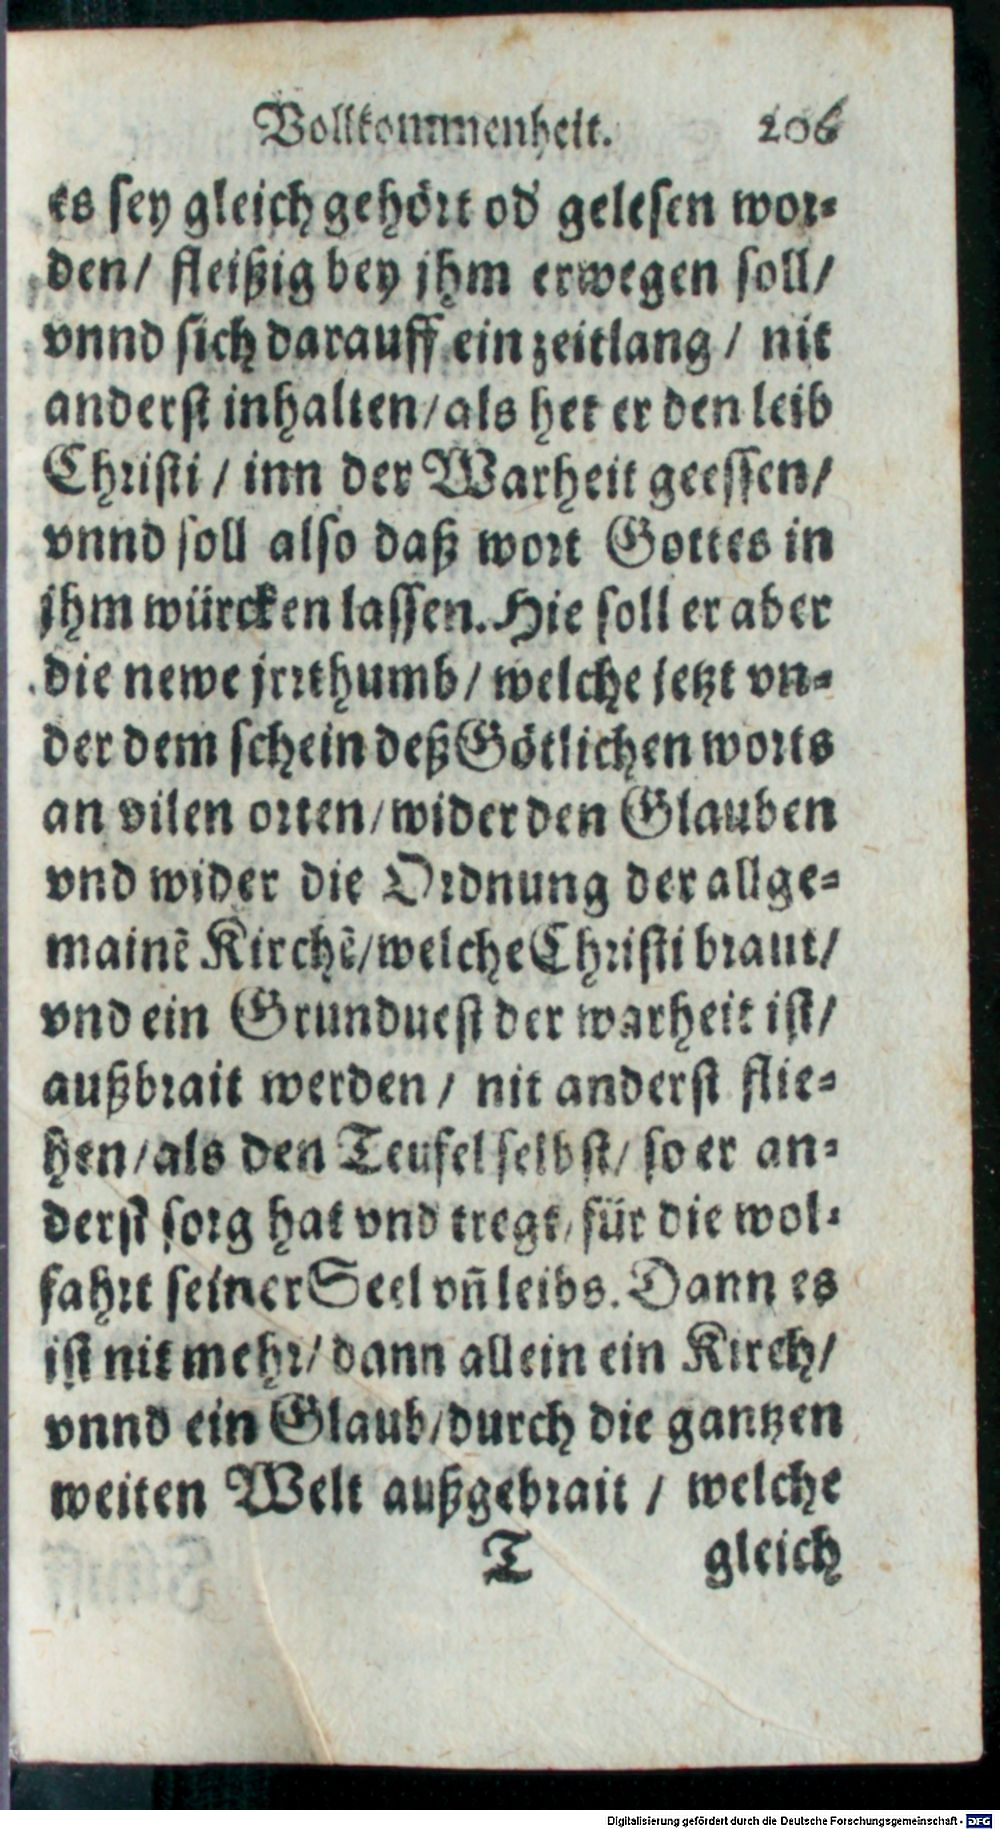 Vollkommenheit. 206
es sey gleich gehört od' gelesen wor⸗
den/ fleißig bey jhm erwegen soll/
vnnd sich darauff ein zeitlang / nit
anderst inhalten/ als het er den leib
Christi / inn der Warheit geessen/
vnnd soll also daß wort Gottes in
jhm würcken lassen. Hie soll er aber
die newe jrrthumb/ welche jetzt vn⸗
der dem schein deß Götlichen worts
an vilen orten/ wider den Glauben
vnd wider die Ordnung der allge⸗
mainē Kirchē/ welche Christi braut/
vnd ein Grunduest der warheit ist/
außbrait werden / nit anderst flie⸗
hen/ als den Teufel selbst/ so er an⸗
derst sorg hat vnd tregt/ für die wol⸗
fahrt seiner Seel vñ leibs. Dann es
ist nit mehr/ dann allein ein Kirch/
vnnd ein Glaub/ durch die gantzen
weiten Welt außgebrait / welche
T gleich
Digitalisierung gefördert durch die Deutsche Forschungsgemeinschaft - DFG